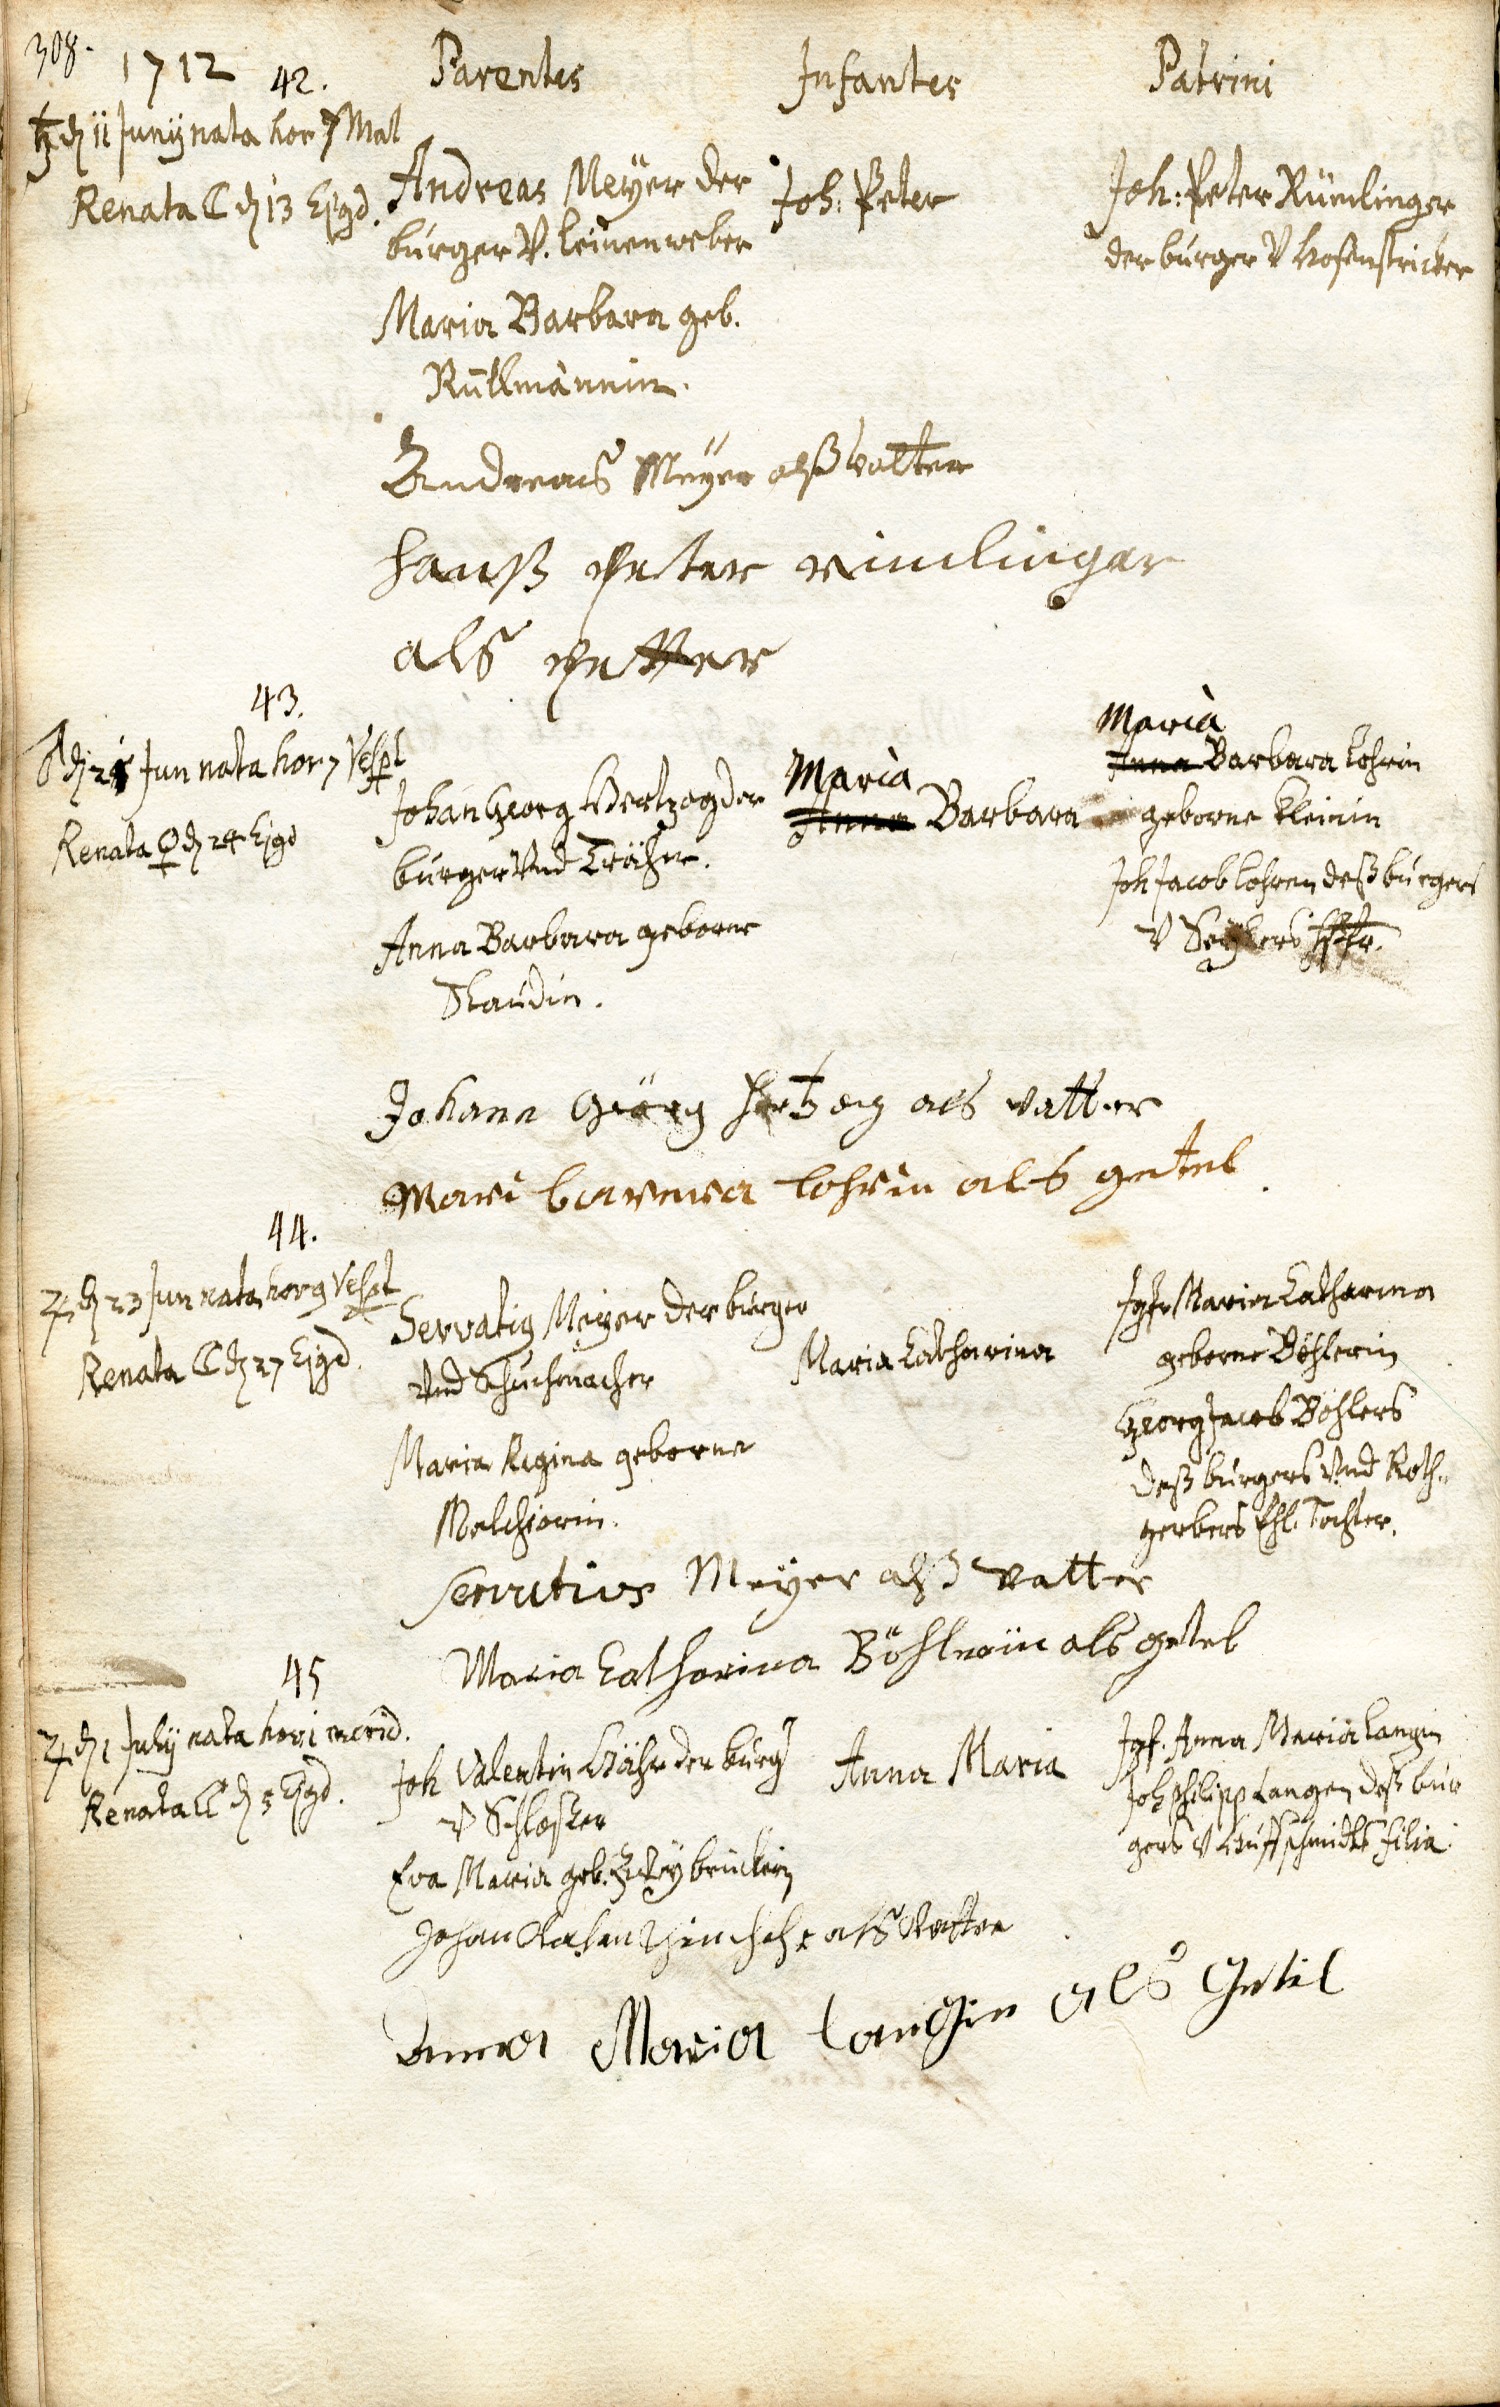 308.
1712 42. Parentes Infantes Patrini
♄ d 11 Junij nata hor 7 Mat
Renata ☾ d 13 Ejsd.
Andreas Meyer der
burger V. leinenweber
Maria Barbara geb.
Rullmännin.
Joh: Peter
Joh: Peter Rümlinger
der burger V hosenstricker
Andreas Meyer alß vatter
hanß peter rimlinger
als petter
43.
♂ d 21 Jun nata hor 7 Vespt
Renata ♀ d 24 Ejsd
Johan Georg Hertzog der
burger Vnd
Anna Barbara geborne
Staudin.
Maria
Anna Barbara
Maria
Anna Barbara Lohrin
geborne Kleinin
Joh Jacob Lohren deß burgers
V
Johann Görg hertzog als vatter
Mari barwra lohrin als getel
44.
♃ d 23 Jun nata hor 9 Vespt
Renata ☾ d 27 Ejsd.
Servatig Meyer der burger
Vnd Schuhmacher
Maria Regina geborne
Melchiorin.
Maria Catharina
Jgfr Maria Catharina
geborne Böhlerin
Georg Jacob Böhlers
deß burgers Vnd Roth-
gerbers Ehl. Tochter.
Servatius Meyer alß vatter
Maria Catharina Böhlerin als getel
45
♃ d 1 July nata hor 1 merid.
Renata ☾ d 5 Ejsd.
Joh Valentin der burg
V Schloßer
Eva Maria geb. Zweybrückin
Anna Maria
Jgf. Anna Maria Langin
Joh Philipp Langen deß bur
gers V Huffschmidts filia.
Johan als Vatter
Anna Maria langin als Getil